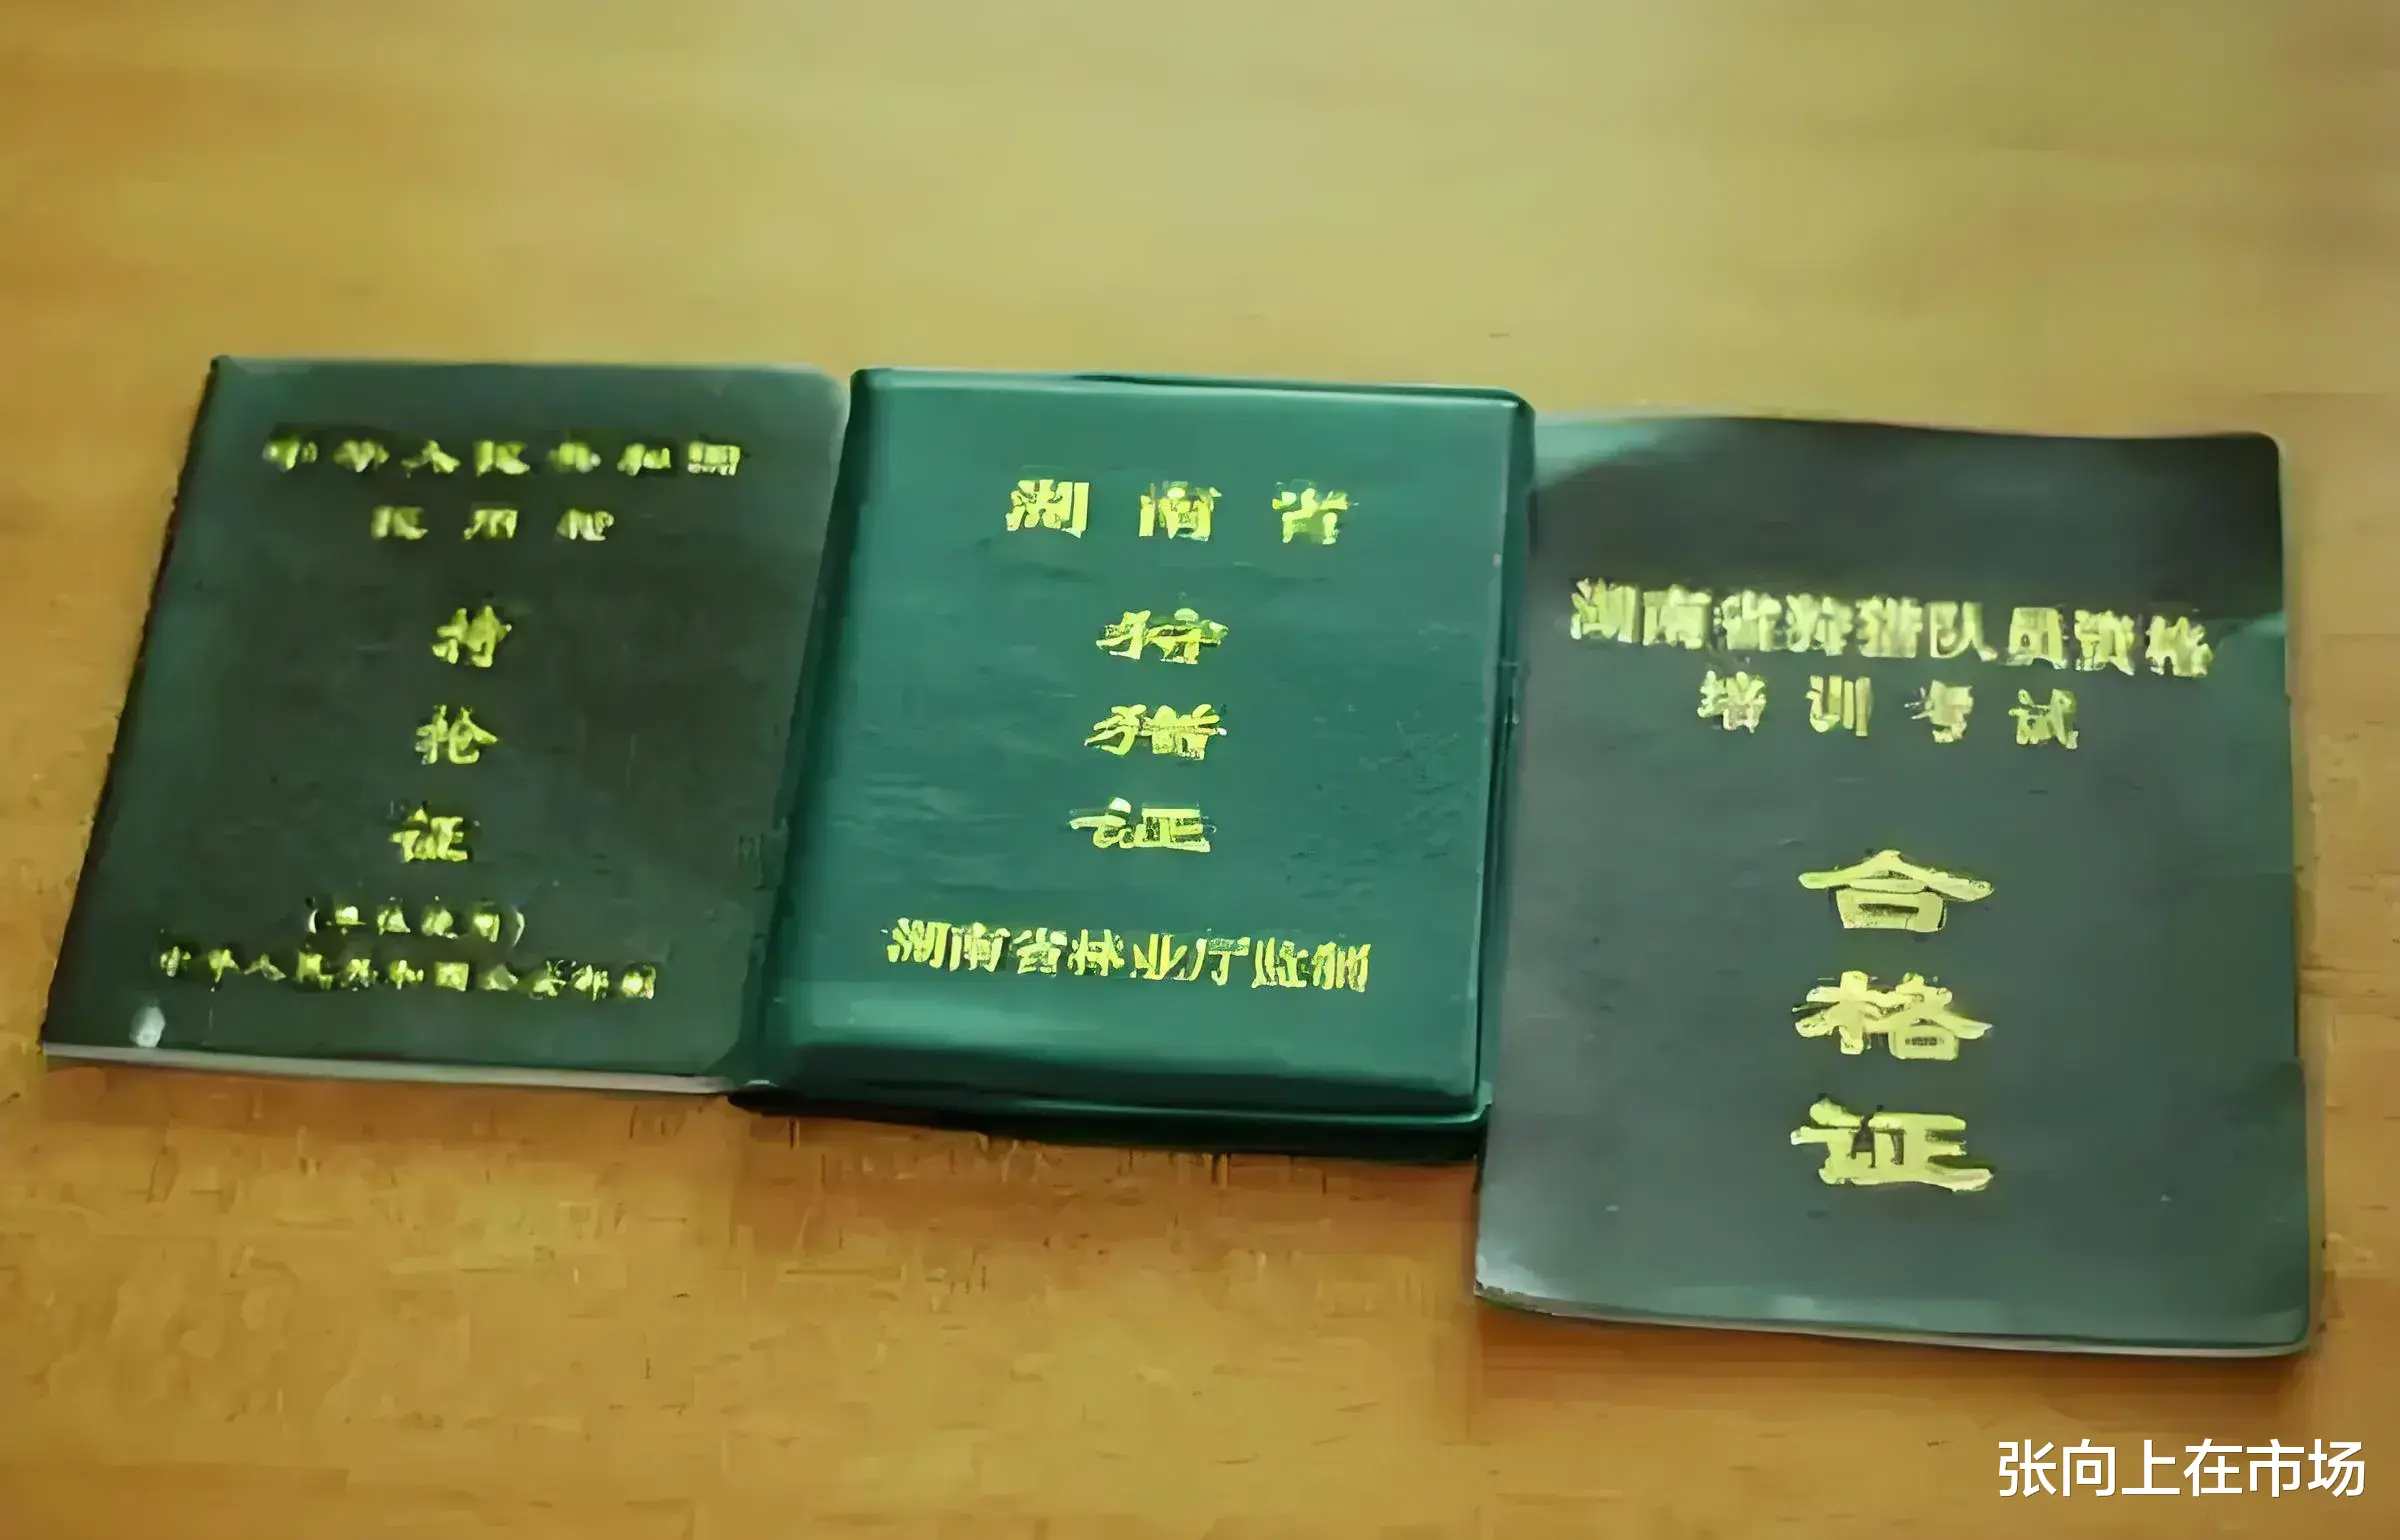 中华人民共和国
民用枪
持
枪
证
中华人民共和国公安部制
湖南省
狩
猎
证
湖南省林业厅监制
湖南省狩猎队员资格
培训考试
合
格
证
张向上在市场